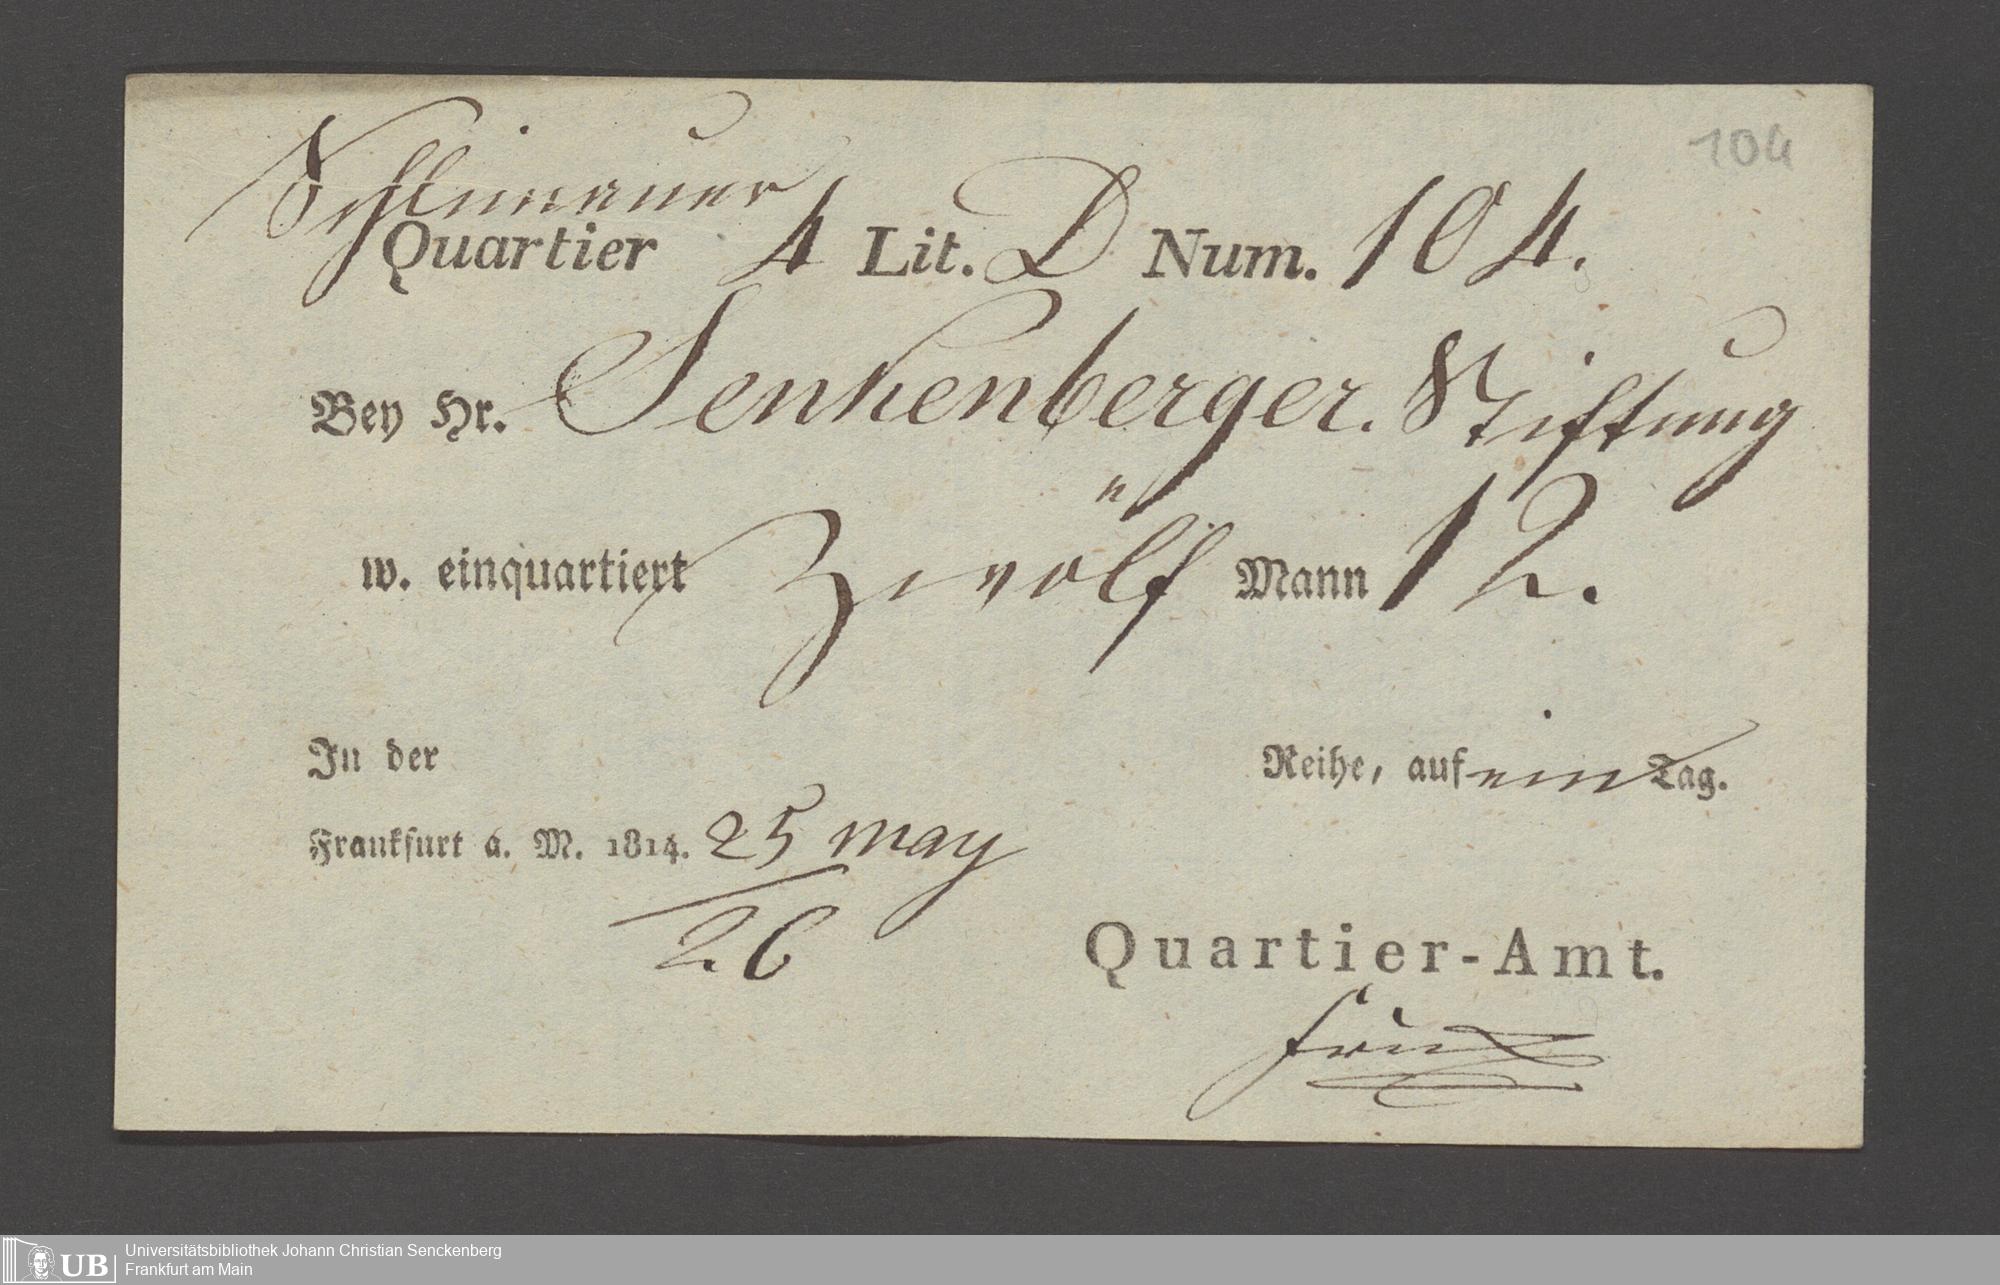 104
Quartier 4 Lit. D Num. 104.
Bey Hr. Senkenberger. Stiftung
w. einquartiert Zwölf Mann 12.
In der Reihe, auf ein Tag.
Frankfurt a. M. 1814. 25 may
26
Quartier-Amt.
UB Universitätsbibliothek Johann Christian Senckenberg
Frankfurt am Main